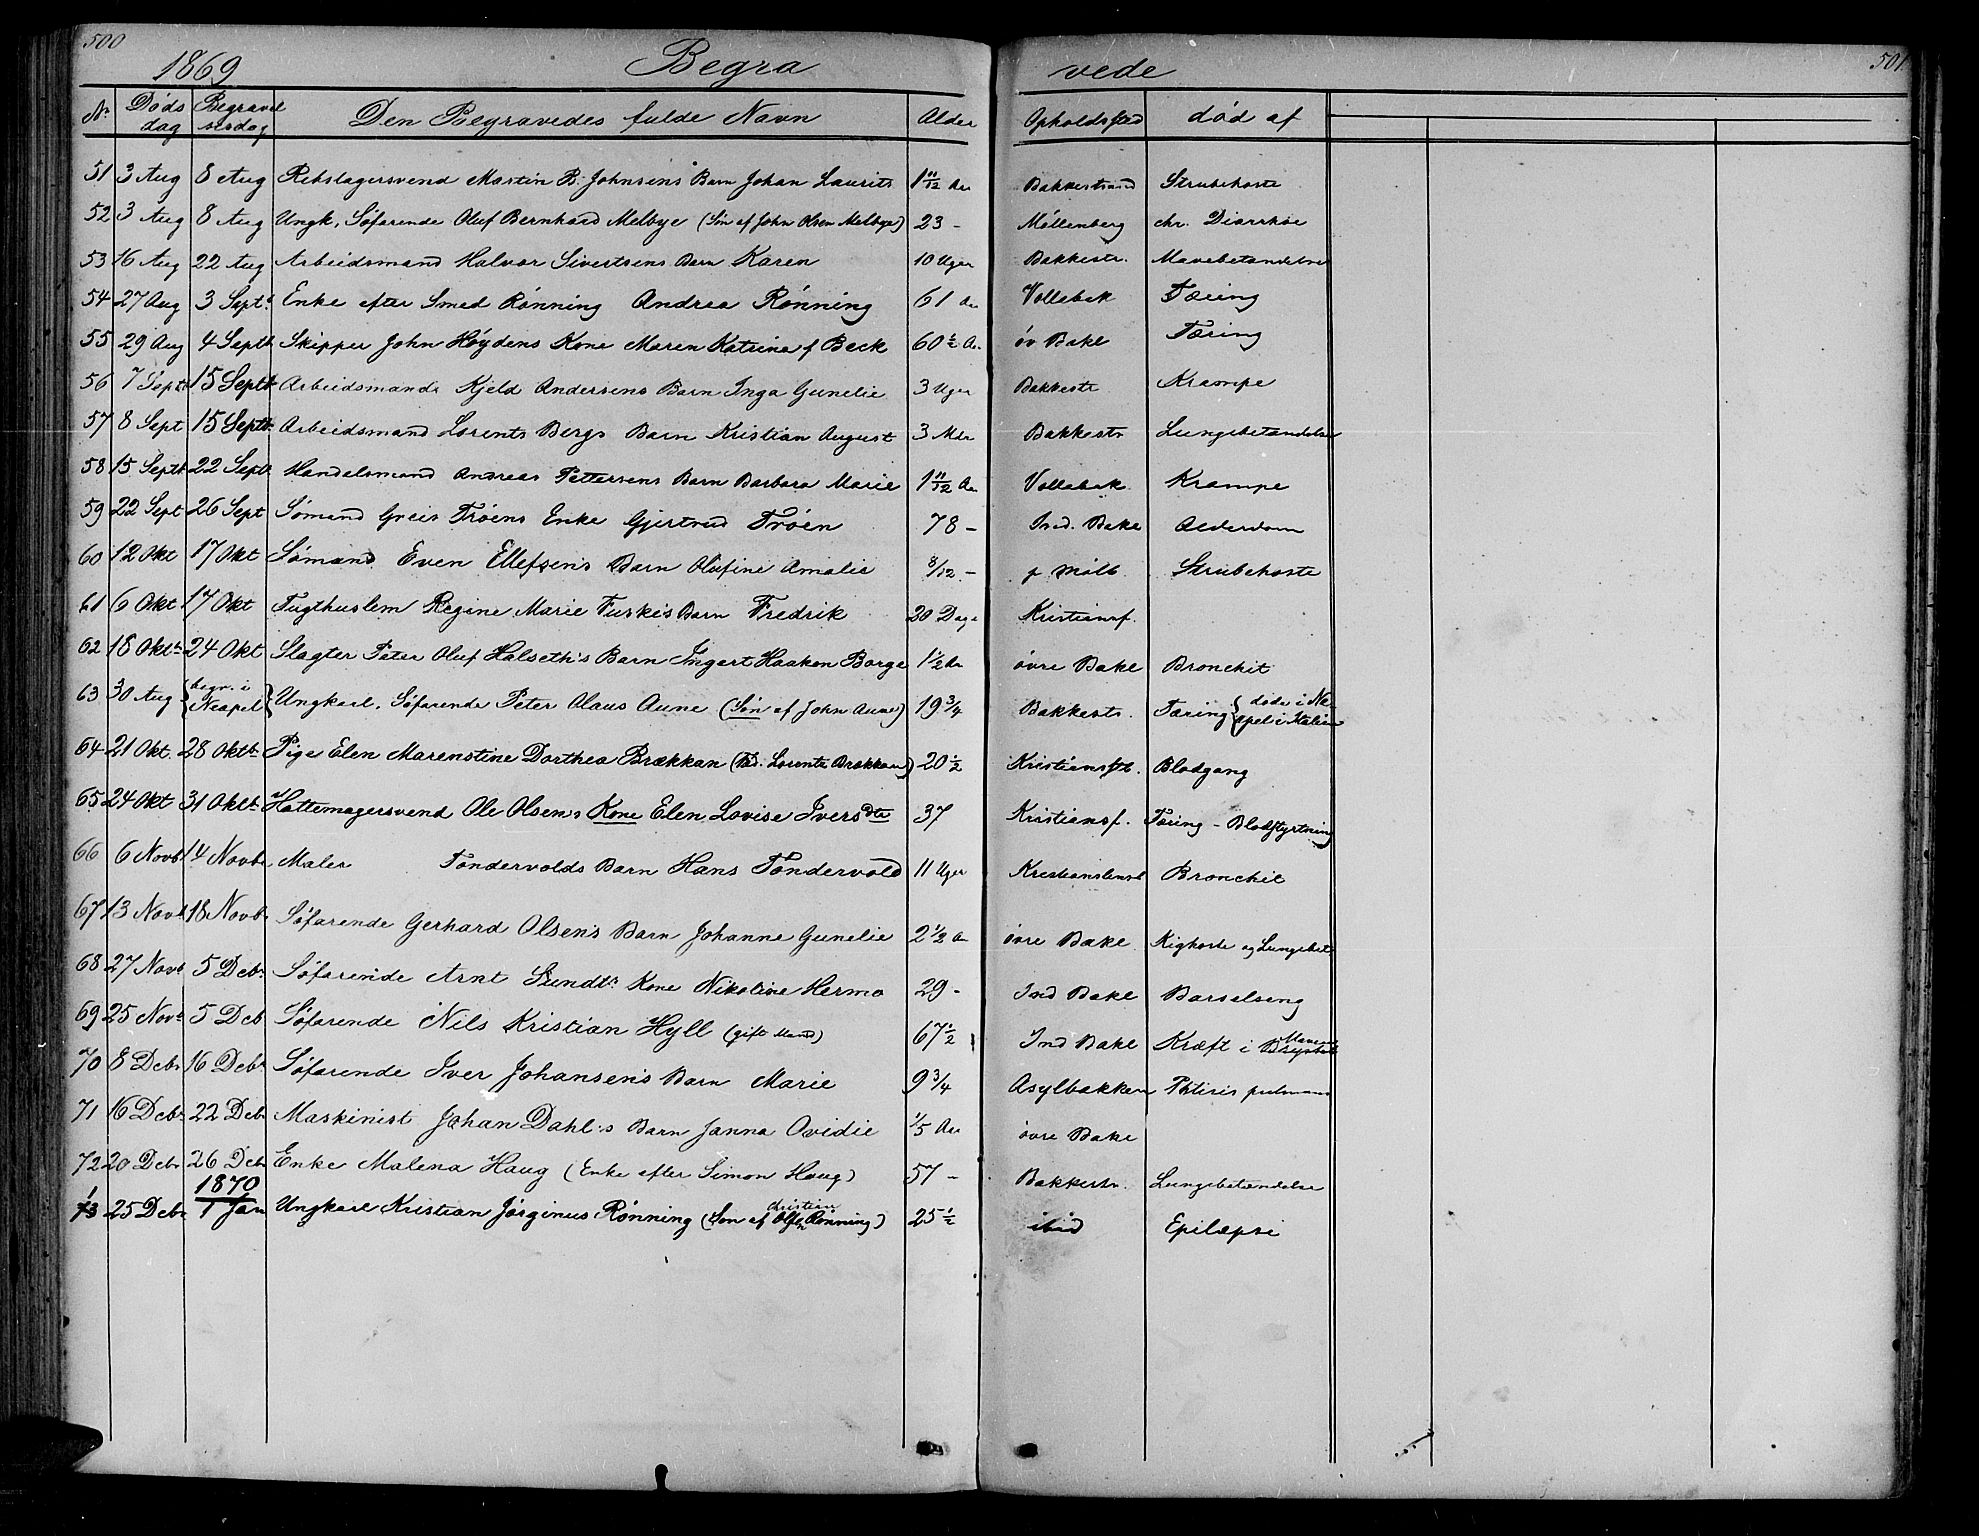 500 501
1869 Begra vede
Nr. Døds dag Begravelsesdag Den Begravedes fulde Navn Alder Opholdssted død af
51 3 Aug 8 Aug Rebslagersvend Martin B. Johnsens Barn Johan Laurits 1 11/12 Aar Bakkestrand Strubehoste
52 3 Aug 8 Aug Ungk. Søfarende Oluf Bernhard Melbye (Søn af John Olsen Melbye) 23 - Møllenberg chr. Diarrhøe
53 16 Aug 22 Aug Arbeidsmand Halvor Sivertsens Barn Karen 10 Uger Bakkestr. Mavebetændelse
54 27 Aug 3 Septr Enke efter Smed Rønning Andrea Rønning 61 Aar Vollabak Tæring
55 29 Aug 4 Septb Skipper John Høydens Kone Maren Katrine f Beck 60 1/2 A. øv Bakl Tæring
56 7 Septb 15 Septb Arbeidsmands Kjeld Andersens Barn Inga Gunelie 3 Uger Bakkestr Krampe
57 8 Sept 15 Septb Arbeidsmand Lorents Bergs Barn Kristian August 3 Mdr Bakkestr Lungebetændelse
58 15 Septb 22 Septb Handelsmand Andreas Pettersens Barn Barbara Marie 1 11/12 Aar Vollabak Krampe
59 22 Sept 26 Sept Sømand Greis Trøens Enke Gjertrud Trøen 78 - Ind. Bakl Alderdom
60 12 Okt 17 Okt Sømand Even Ellefsens Barn Olufine Amalie 8/12 - p Mølb. Strubehoste
61 6 Okt 17 Okt Tugthuslem Regine Marie Fuskeis Barn Fredrik 20 Dage Kristiansf.
62 18 Oktb 24 Okt Slagter Peter Oluf Halseth's Barn Ingert Haaken Borge 1 1/2 Aar øvre Bakl Bronchit
63 30 Aug {begr. i Neapel} Ungkarl, Søfarende Peter Olaus Aune (Søn af John Aune) 19 3/4 Bakkestr. Tæring {døde i Neapel i Italien
64 21 Okt. 28 Oktb Pige Elen Marenstine Dorthea Brækkan (Fad. Lorents Brækkan) 20 1/2 Kristiansft. Blodgang
65 24 Okt 31 Oktb Hattemagersvend Ole Olsens Kone Elen Lovise Iversdtr 37 Kristiansf. Tæring - Blodstyrtning
66 6 Novb 14 Novb Maler Tøndervolds Barn Hans Tøndervold 11 Uger Bronchit
67 13 Novb 18 Novb Søfarende Gerhard Olsens Barn Johanne Gunelie 2 1/2 A øvre Bakl Kighoste og Lungebet
68 27 Novb 5 Debr Søfarende Arnt Sundt's Kone Nikoline Hermo 29 - Ind Bakl Barselseng
69 25 Novb 5 Deb Søfarende Nils Kristian Hyll (gift Mand) 67 1/2 Ind Bakl Kræft i
70 8 Debr 16 Debr Søfarende Iver Johansens Barn Marie 9 3/4 Asylbakken Phtisis pulmonum
71 16 Debr 22 Debr Maskinist Johan Dahl's Barn Janna Ovidie 1/5 Aar øvre Bakl
72 20 Debr 26 Debr Enke Malena Haug (Enke efter Simon Haug) 57 - Bakkestr. Lungebetændelse
1870
1 73 25 Debr 1 Jan Ungkarl Kristian Jørginus Rønning (Søn af Kristian Rønning) 25 1/2 ibid Epilepsi